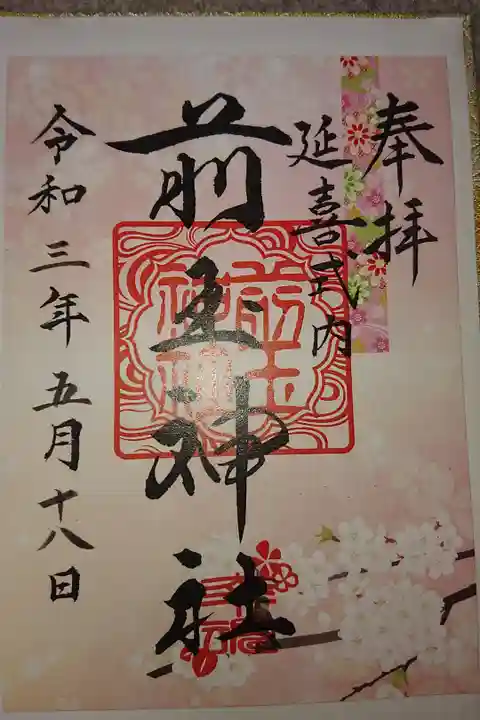 奉拝
延喜式内
前玉神社
令和三年五月十八日
前玉
神社